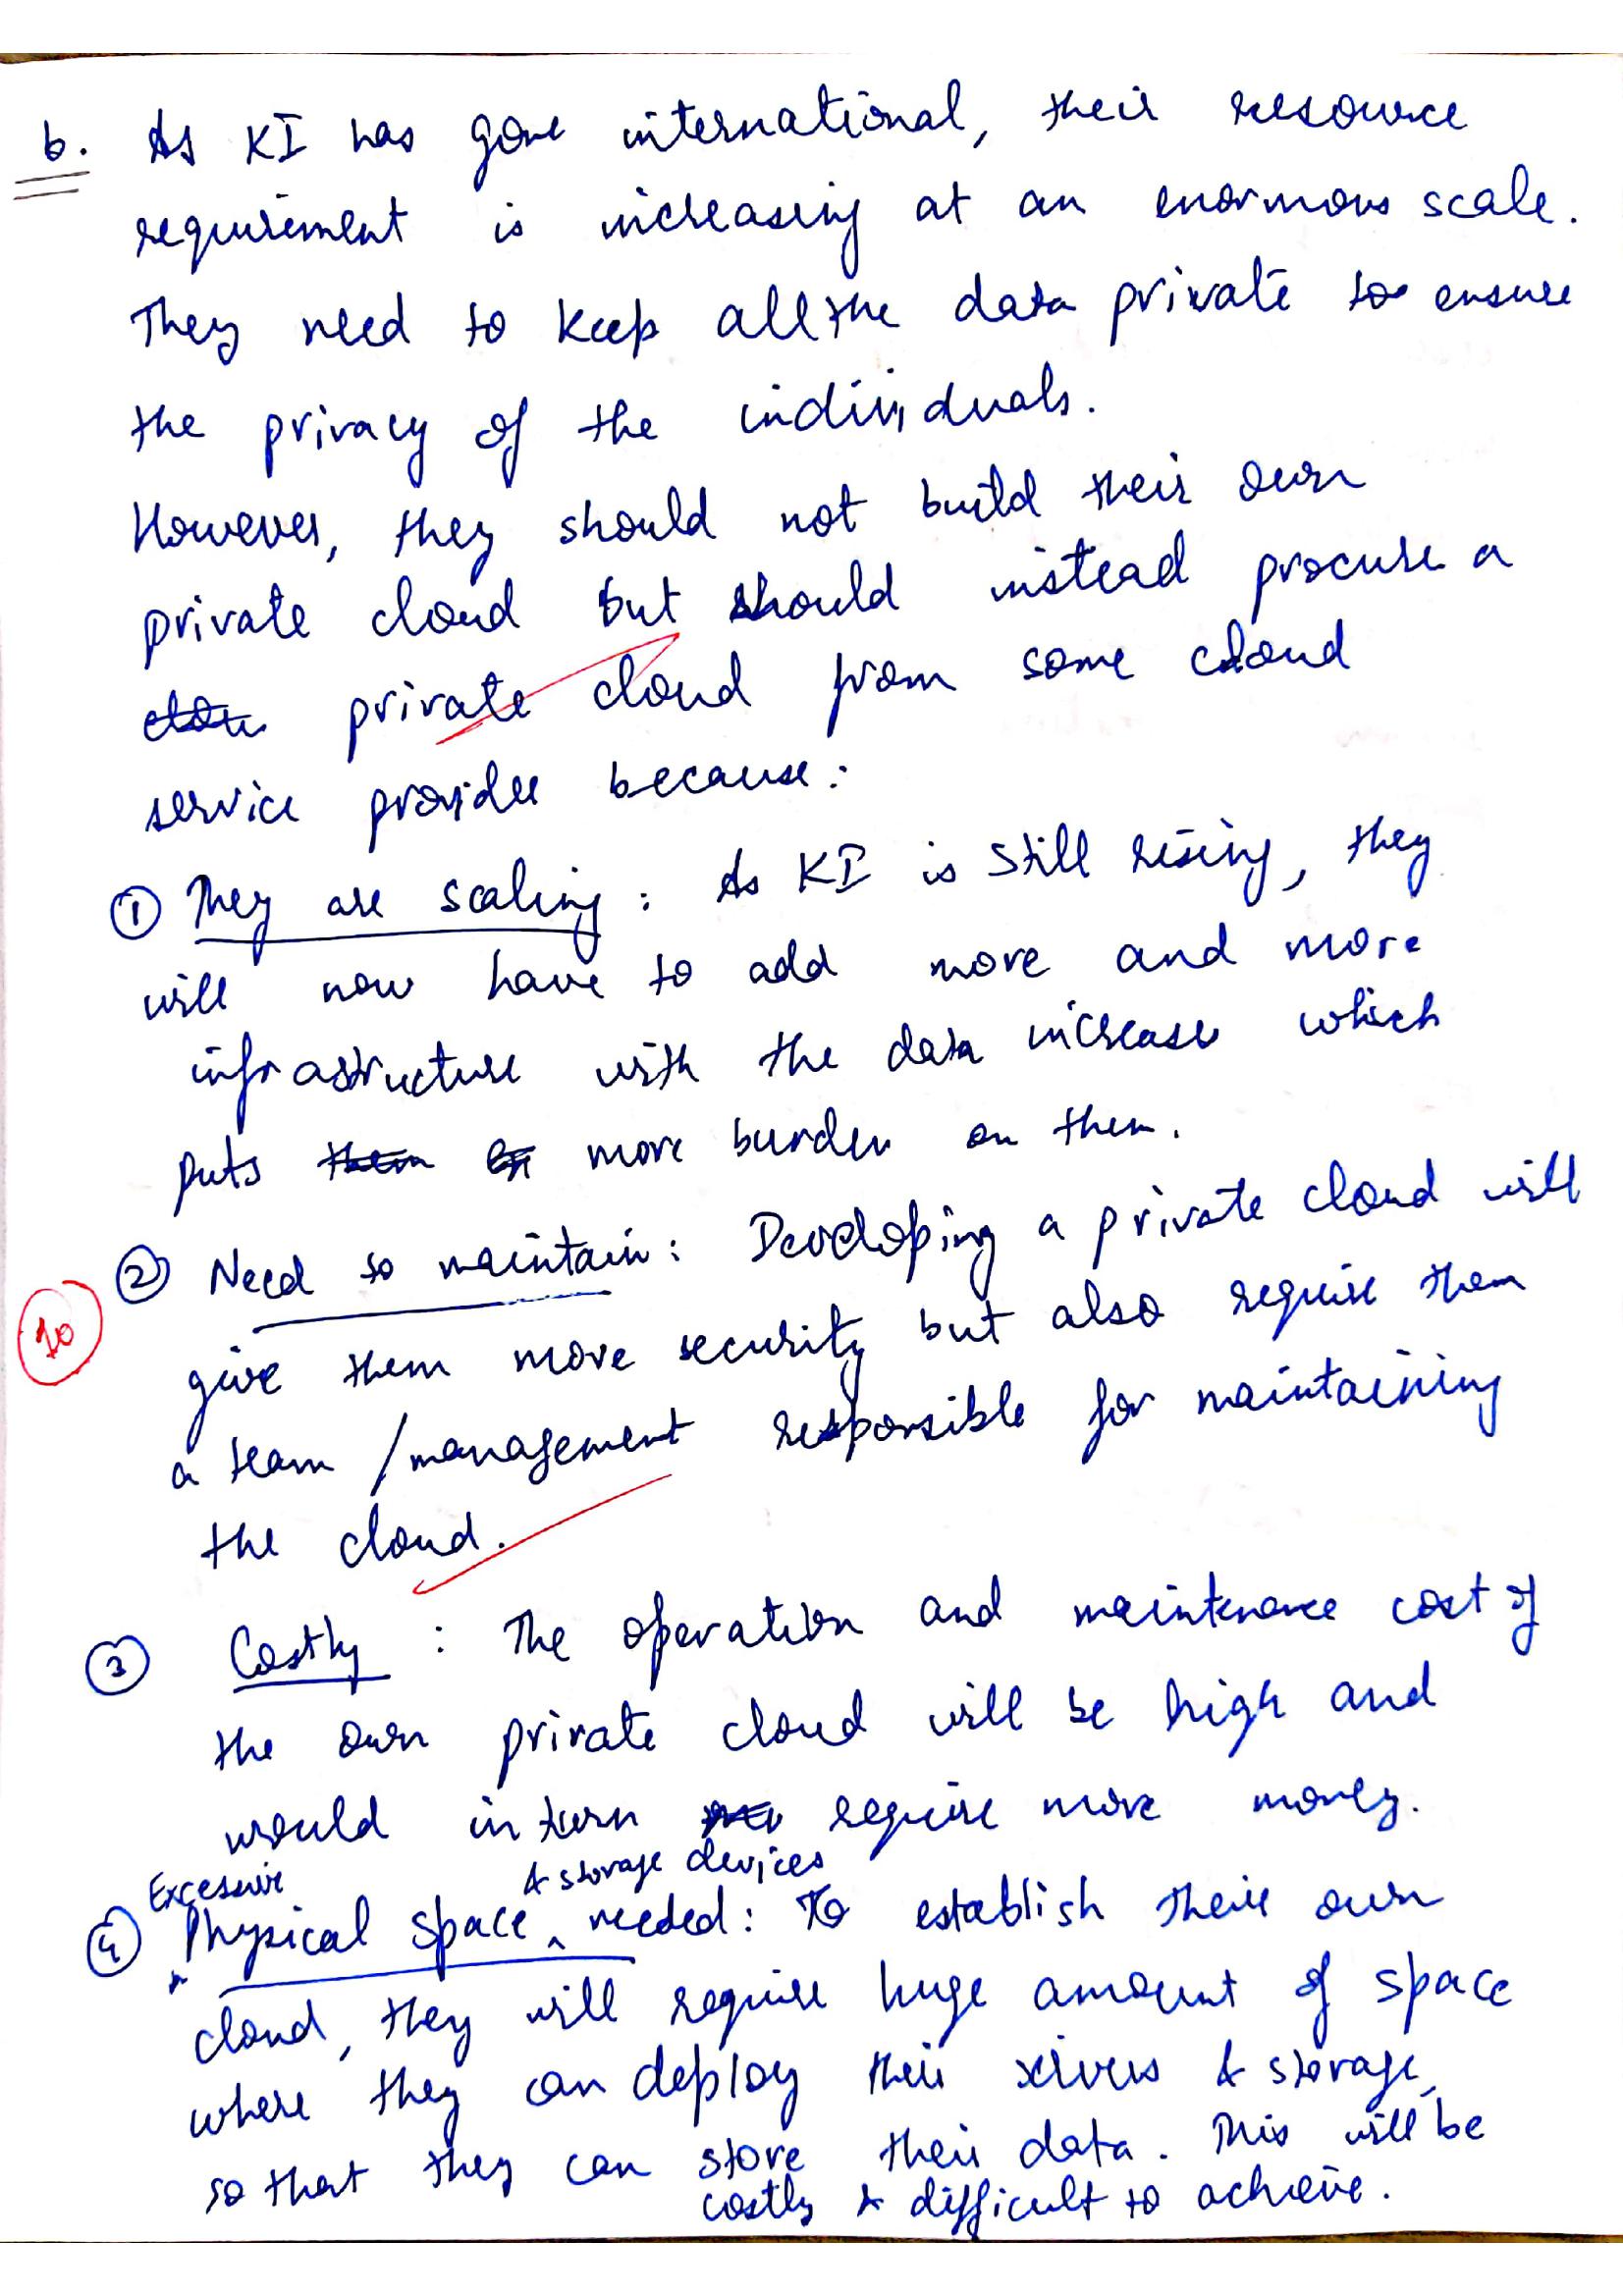 b. As KI has gone international, their resource
requirement is increasing at an enormous scale.
They need to keep all the data private to ensure
the privacy of the individuals.
However, they should not build their own
private cloud but should instead procure a
private cloud from some cloud
service provider because:
① They are scaling: As KI is still rising, they
will now have to add more and more
infrastructure with the data increase which
puts more burden on them.
② Need to maintain: Developing a private cloud will
give them more security but also require them
10
a team/management responsible for maintaining
the cloud.
③ Costly: The operation and maintenance cost of
the own private cloud will be high and
would in turn require more money.
④ Excessive Physical space & storage devices needed: To establish their own
cloud, they will require huge amount of space
where they can deploy their servers & storage
so that they can store their data. This will be
costly & difficult to achieve.